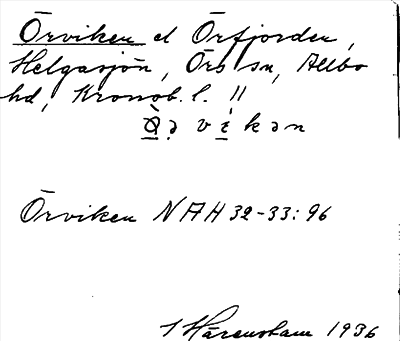 Örviken el Örfjorden,
Helgasjön, Örs sn, Allbo
hd, Kronob. l. ||
Örviken NAH 32-33: 96
1936